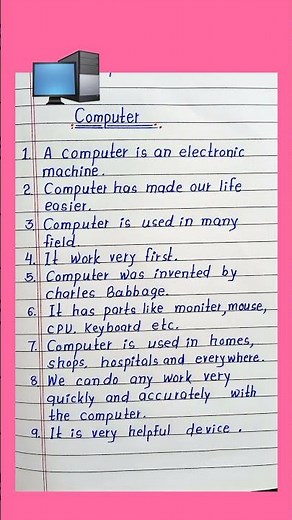 Computer
1. A computer is an electronic
machine.
2. Computer has made our life
easier.
3. Computer is used in many
field.
4. It work very first.
5. Computer was invented by
charles Babbage.
6. It has parts like moniter, mouse,
CPU, Keyboard etc.
7. Computer is used in homes,
shops, hospitals and everywhere.
8. We can do any work very
quickly and accurately with
the computer.
9. It is very helpful device.